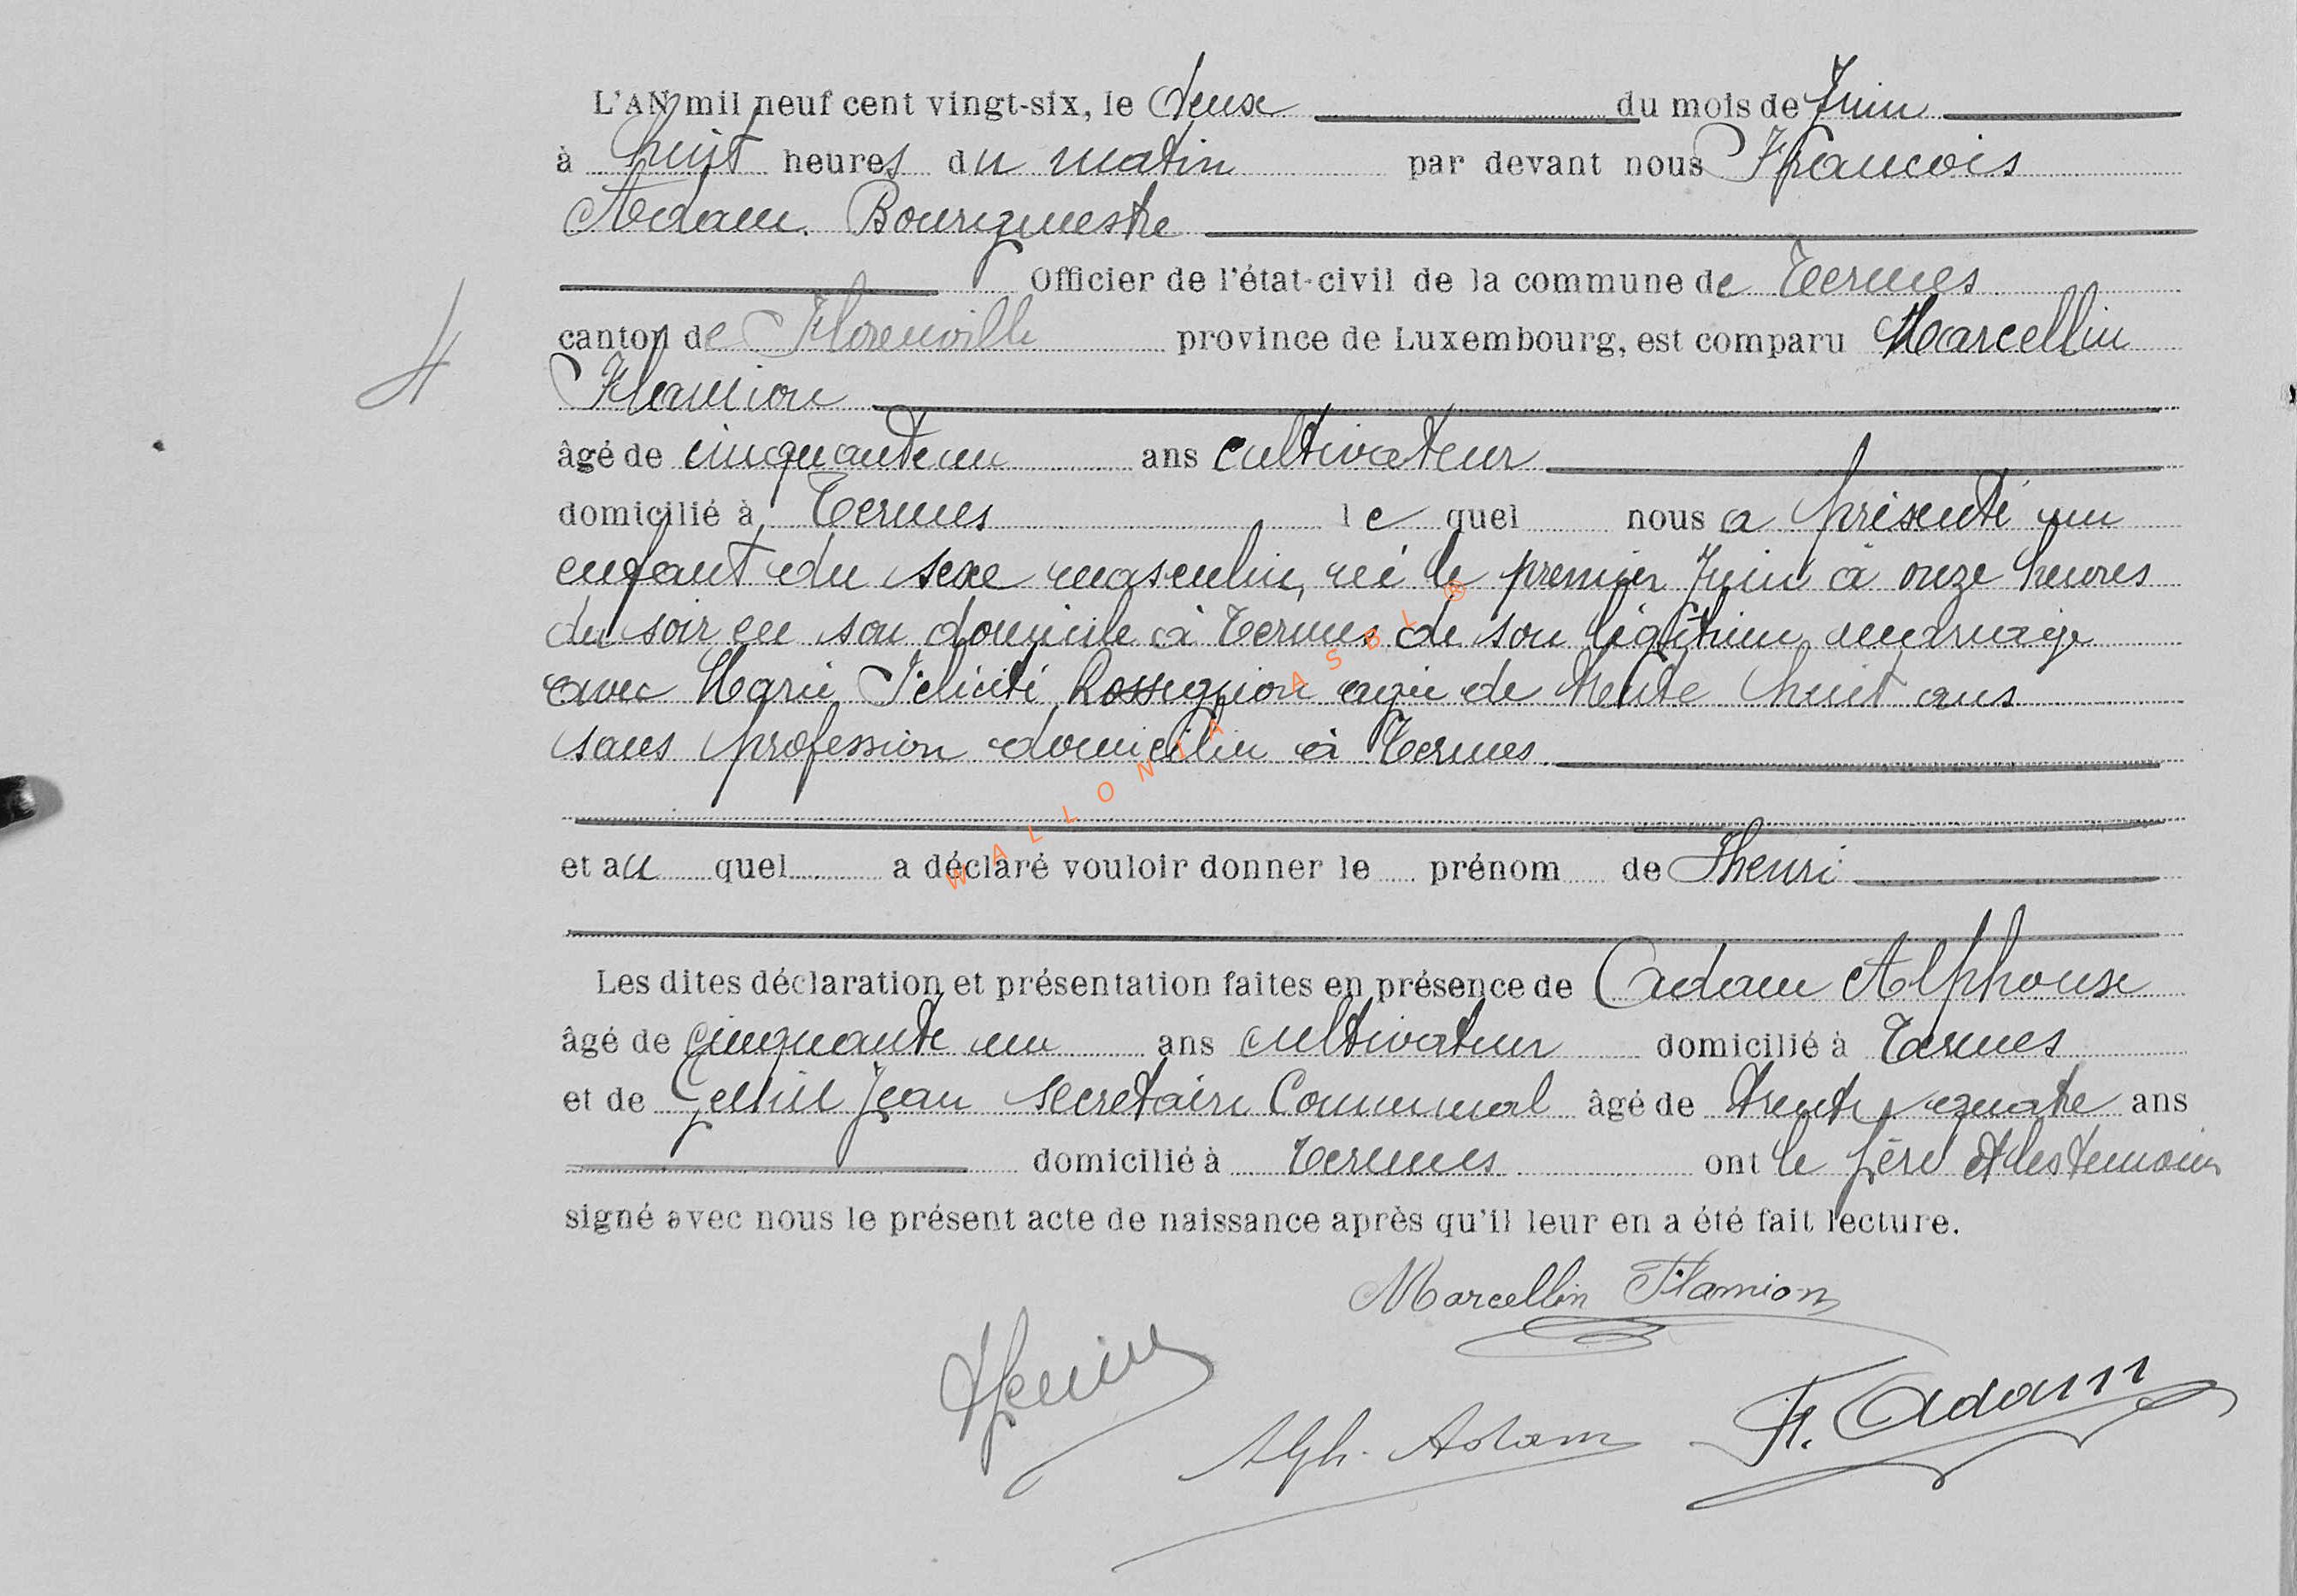 L'AN mil neuf cent vingt-six, le deux du mois de Juin
à huit heures du matin par devant nous François
Adam. Bourgmestre
Officier de l'état-civil de la commune de Termes
canton de Florenville province de Luxembourg, est comparu Marcellin
4
Flamion
âgé de cinquante un ans cultivateur
domicilié à Termes le quel nous a présenté un
enfant du sexe masculin, né le premier Juin à onze heures
du soir en son domicile à Termes de son légitime mariage
avec Marie Félicité Rossignon agée de trente huit ans
sans profession domiciliée à Termes.
WALLONIA ASBL ®
et au quel a déclaré vouloir donner le prénom de Henri
Les dites déclaration et présentation faites en présence de Adam Alphonse
âgé de cinquante un ans cultivateur domicilié à Termes
et de Jean secretaire Communal âgé de trente quatre ans
domicilié à Termes ont le père et les témoins
signé avec nous le présent acte de naissance après qu'il leur en a été fait lecture.
Marcellin Flamion
Alph. Adam F. Adam